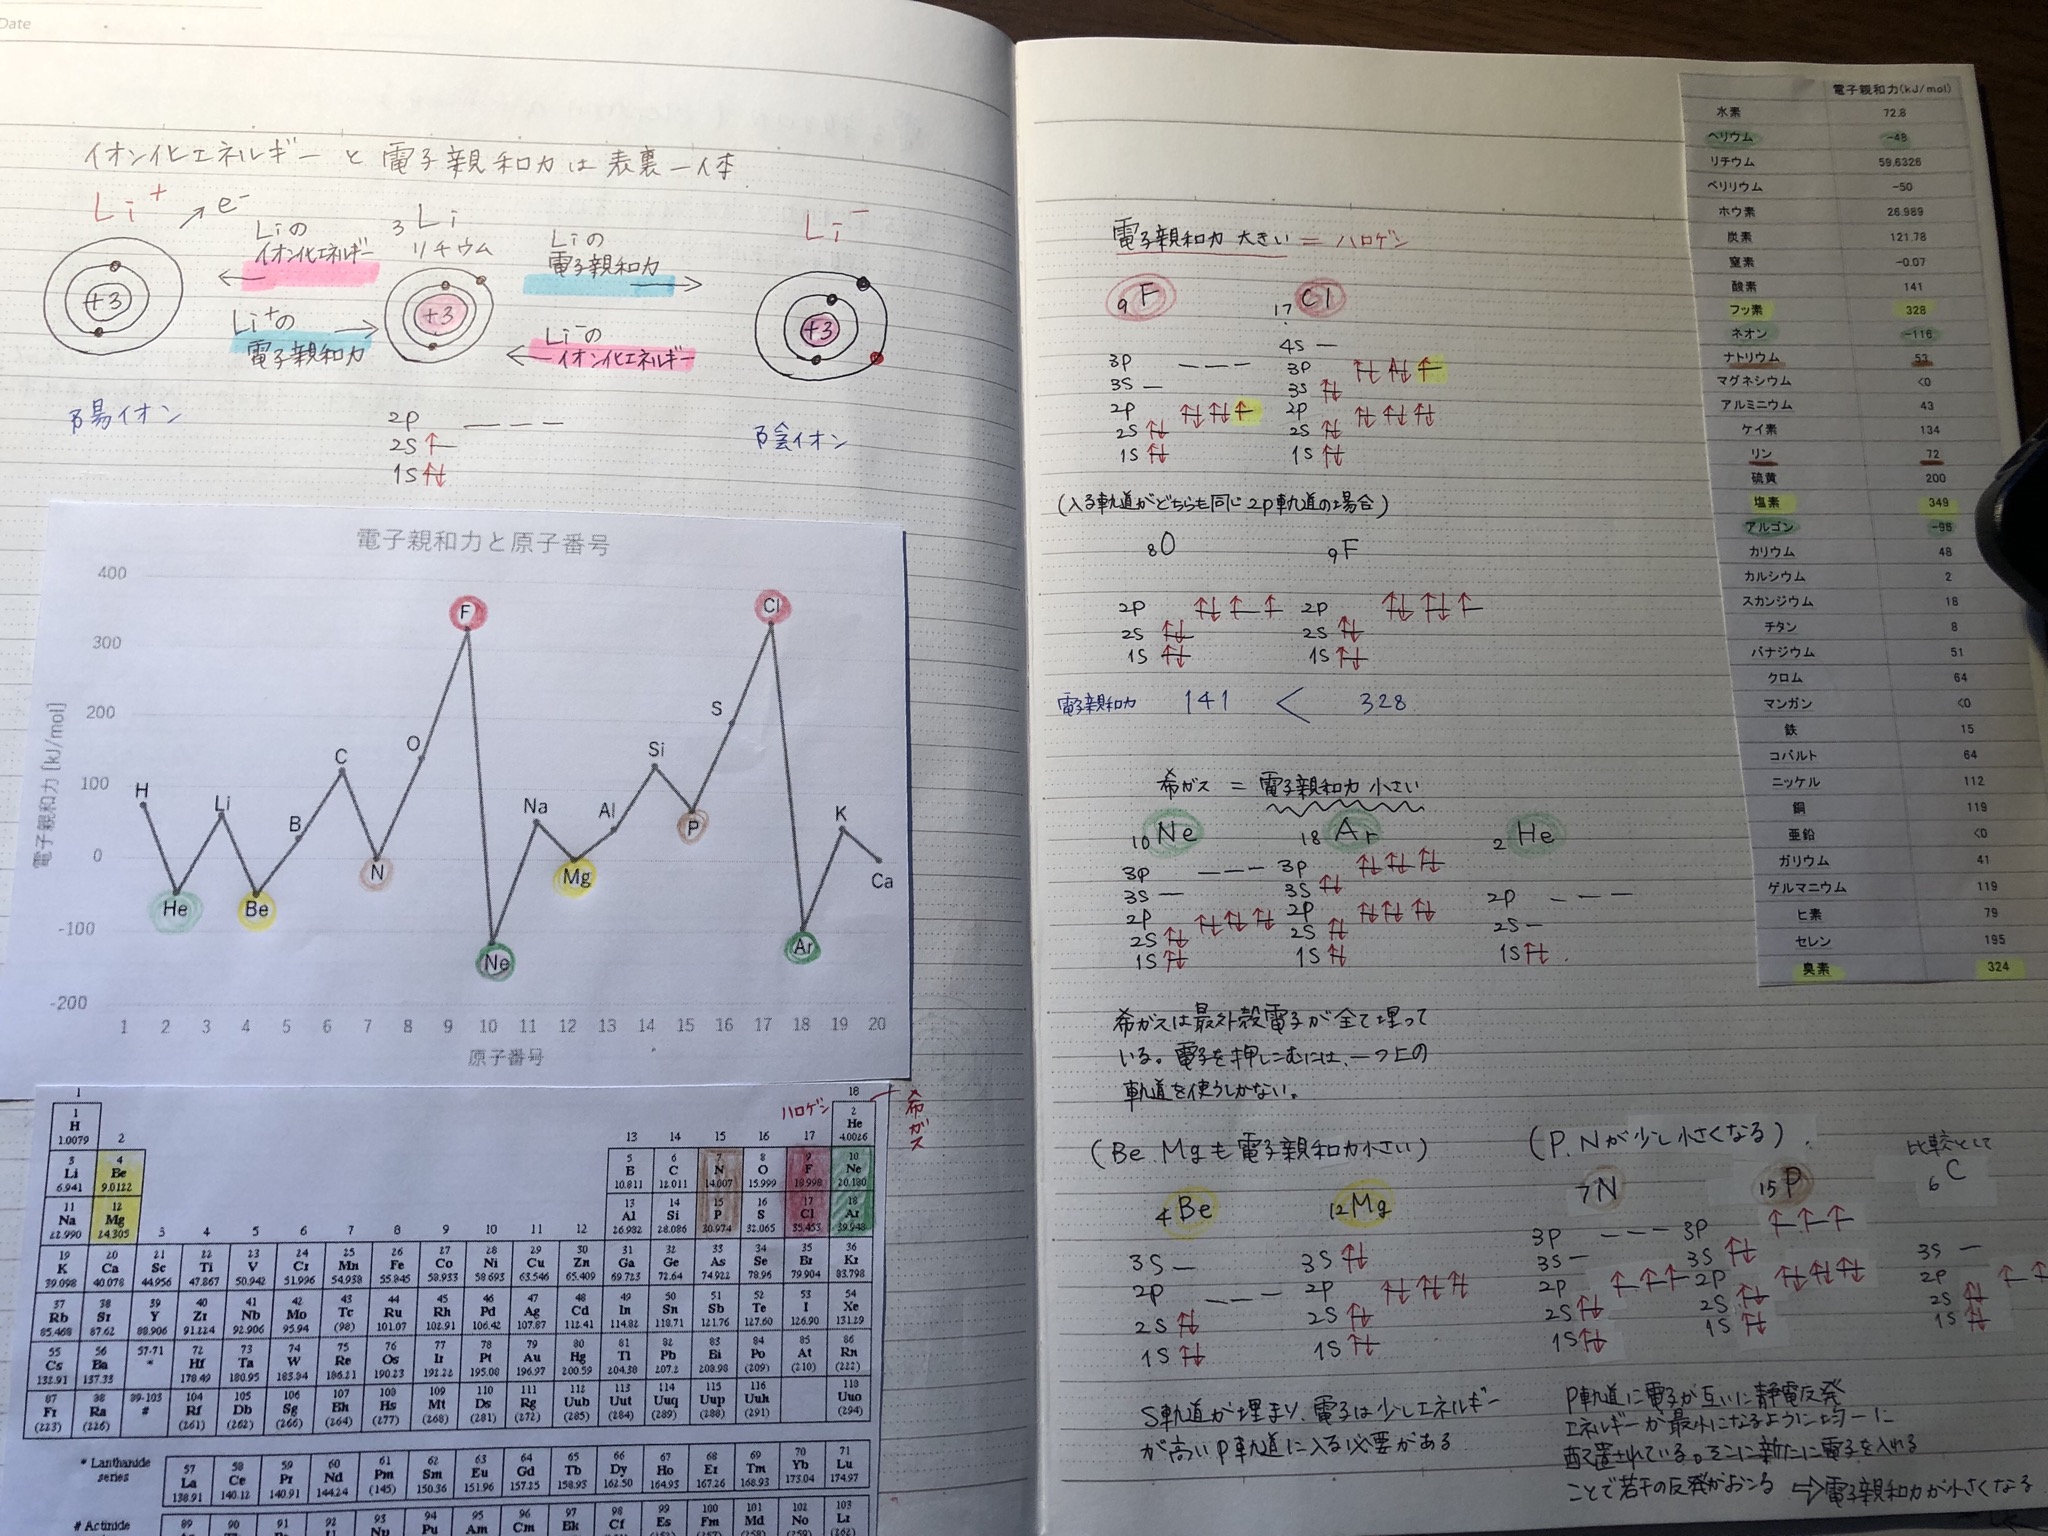 Date
イオン化エネルギーと電子親和力は表裏一体
Li⁺
e⁻
Liの
イオン化エネルギー
₃Li
リチウム
Liの
電子親和力
Li⁻
+3
+3
+3
Li⁺の
電子親和力
Li⁻の
イオン化エネルギー
陽イオン
2P
2S ↑
1S ↑↓
陰イオン
電子親和力と原子番号
電子親和力 [kJ/mol]
400
300
200
100
0
-100
-200
H
He
Li
Be
B
C
N
O
F
Ne
Na
Mg
Al
Si
P
S
Cl
Ar
K
Ca
1 2 3 4 5 6 7 8 9 10 11 12 13 14 15 16 17 18 19 20
原子番号
1 18
ハロゲン
希ガス
1 2
H He
1.0079 2 13 14 15 16 17 4.0026
3 4 5 6 7 8 9 10
Li Be B C N O F Ne
6.941 9.0122 10.811 12.011 14.007 15.999 18.998 20.180
11 12 13 14 15 16 17 18
Na Mg Al Si P S Cl Ar
22.990 24.305 3 4 5 6 7 8 9 10 11 12 26.982 28.086 30.974 32.065 35.453 39.948
19 20 21 22 23 24 25 26 27 28 29 30 31 32 33 34 35 36
K Ca Sc Ti V Cr Mn Fe Co Ni Cu Zn Ga Ge As Se Br Kr
39.098 40.078 44.956 47.867 50.942 51.996 54.938 55.845 58.933 58.693 63.546 65.409 69.723 72.64 74.922 78.96 79.904 83.798
37 38 39 40 41 42 43 44 45 46 47 48 49 50 51 52 53 54
Rb Sr Y Zr Nb Mo Tc Ru Rh Pd Ag Cd In Sn Sb Te I Xe
85.468 87.62 88.906 91.224 92.906 95.94 (98) 101.07 102.91 106.42 107.87 112.41 114.82 118.71 121.76 127.60 126.90 131.29
55 56 57-71 72 73 74 75 76 77 78 79 80 81 82 83 84 85 86
Cs Ba * Hf Ta W Re Os Ir Pt Au Hg Tl Pb Bi Po At Rn
132.91 137.33 178.49 180.95 183.84 186.21 190.23 192.22 195.08 196.97 200.59 204.38 207.2 208.98 (209) (210) (222)
87 88 89-103 104 105 106 107 108 109 110 111 112 113 114 115 116 118
Fr Ra # Rf Db Sg Bh Hs Mt Ds Rg Uub Uut Uuq Uup Uuh Uuo
(223) (226) (261) (262) (266) (264) (277) (268) (281) (272) (285) (284) (289) (288) (291) (294)
* Lanthanide
series
57 58 59 60 61 62 63 64 65 66 67 68 69 70 71
La Ce Pr Nd Pm Sm Eu Gd Tb Dy Ho Er Tm Yb Lu
138.91 140.12 140.91 144.24 (145) 150.36 151.96 157.25 158.93 162.50 164.93 167.26 168.93 173.04 174.97
# Actinide
89 90 91 92 93 94 95 96 97 98 99 100 101 102 103
Pu Am Cm Bk Cf Es Fm Md No Lr
電子親和力 大きい = ハロゲン
₉F ₁₇Cl
4S
3P 3P ↑↓ ↑↓ ↑
3S 3S ↑↓
2P ↑↓ ↑↓ ↑ 2P ↑↓ ↑↓ ↑↓
2S ↑↓ 2S ↑↓
1S ↑↓ 1S ↑↓
(入る軌道がどちらも同じ2p軌道の場合)
₈O ₉F
2P ↑↓ ↑ ↑ 2P ↑↓ ↑↓ ↑
2S ↑↓ 2S ↑↓
1S ↑↓ 1S ↑↓
電子親和力 141 < 328
希ガス = 電子親和力 小さい
₁₀Ne ₁₈Ar ₂He
3P 3P ↑↓ ↑↓ ↑↓
3S 3S ↑↓
2P ↑↓ ↑↓ ↑↓ 2P ↑↓ ↑↓ ↑↓ 2P
2S ↑↓ 2S ↑↓ 2S
1S ↑↓ 1S ↑↓ 1S ↑↓
希ガスは最外殻電子が全て埋って
いる。電子を押しこむには、一つ上の
軌道を使うしかない。
(Be Mgも電子親和力小さい)
₄Be ₁₂Mg
3S 3S ↑↓
2P 2P ↑↓ ↑↓ ↑↓
2S ↑↓ 2S ↑↓
1S ↑↓ 1S ↑↓
S軌道が埋まり、電子は少しエネルギー
が高いP軌道に入る必要がある
(P. Nが少し小さくなる)
比較として
₇N ₁₅P ₆C
3P 3P ↑ ↑ ↑
3S 3S ↑↓ 3S
2P ↑ ↑ ↑ 2P ↑↓ ↑↓ ↑↓ 2P ↑ ↑
2S ↑↓ 2S ↑↓ 2S ↑↓
1S ↑↓ 1S ↑↓ 1S ↑↓
P軌道に電子が互いに静電反発
エネルギーが最小になるように均一に
配置されている。そこに新たに電子を入れる
ことで若干の反発がおこる ⇒電子親和力が小さくなる
電子親和力(kJ/mol)
水素 72.8
ヘリウム -48
リチウム 59.6326
ベリリウム -50
ホウ素 26.989
炭素 121.78
窒素 -0.07
酸素 141
フッ素 328
ネオン -116
ナトリウム 53
マグネシウム <0
アルミニウム 43
ケイ素 134
リン 72
硫黄 200
塩素 349
アルゴン -96
カリウム 48
カルシウム 2
スカンジウム 18
チタン 8
バナジウム 51
クロム 64
マンガン <0
鉄 15
コバルト 64
ニッケル 112
銅 119
亜鉛 <0
ガリウム 41
ゲルマニウム 119
ヒ素 79
セレン 195
臭素 324